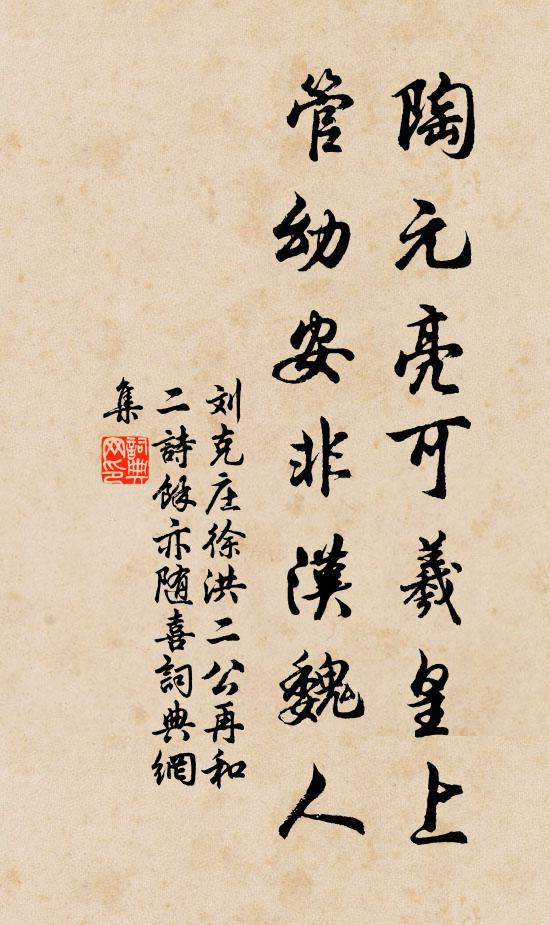 陶元亮可羲皇上
管幼安非漢魏人
刘克庄徐洪二公再和
二詩餘亦随喜詞典網
集
詞典
网印